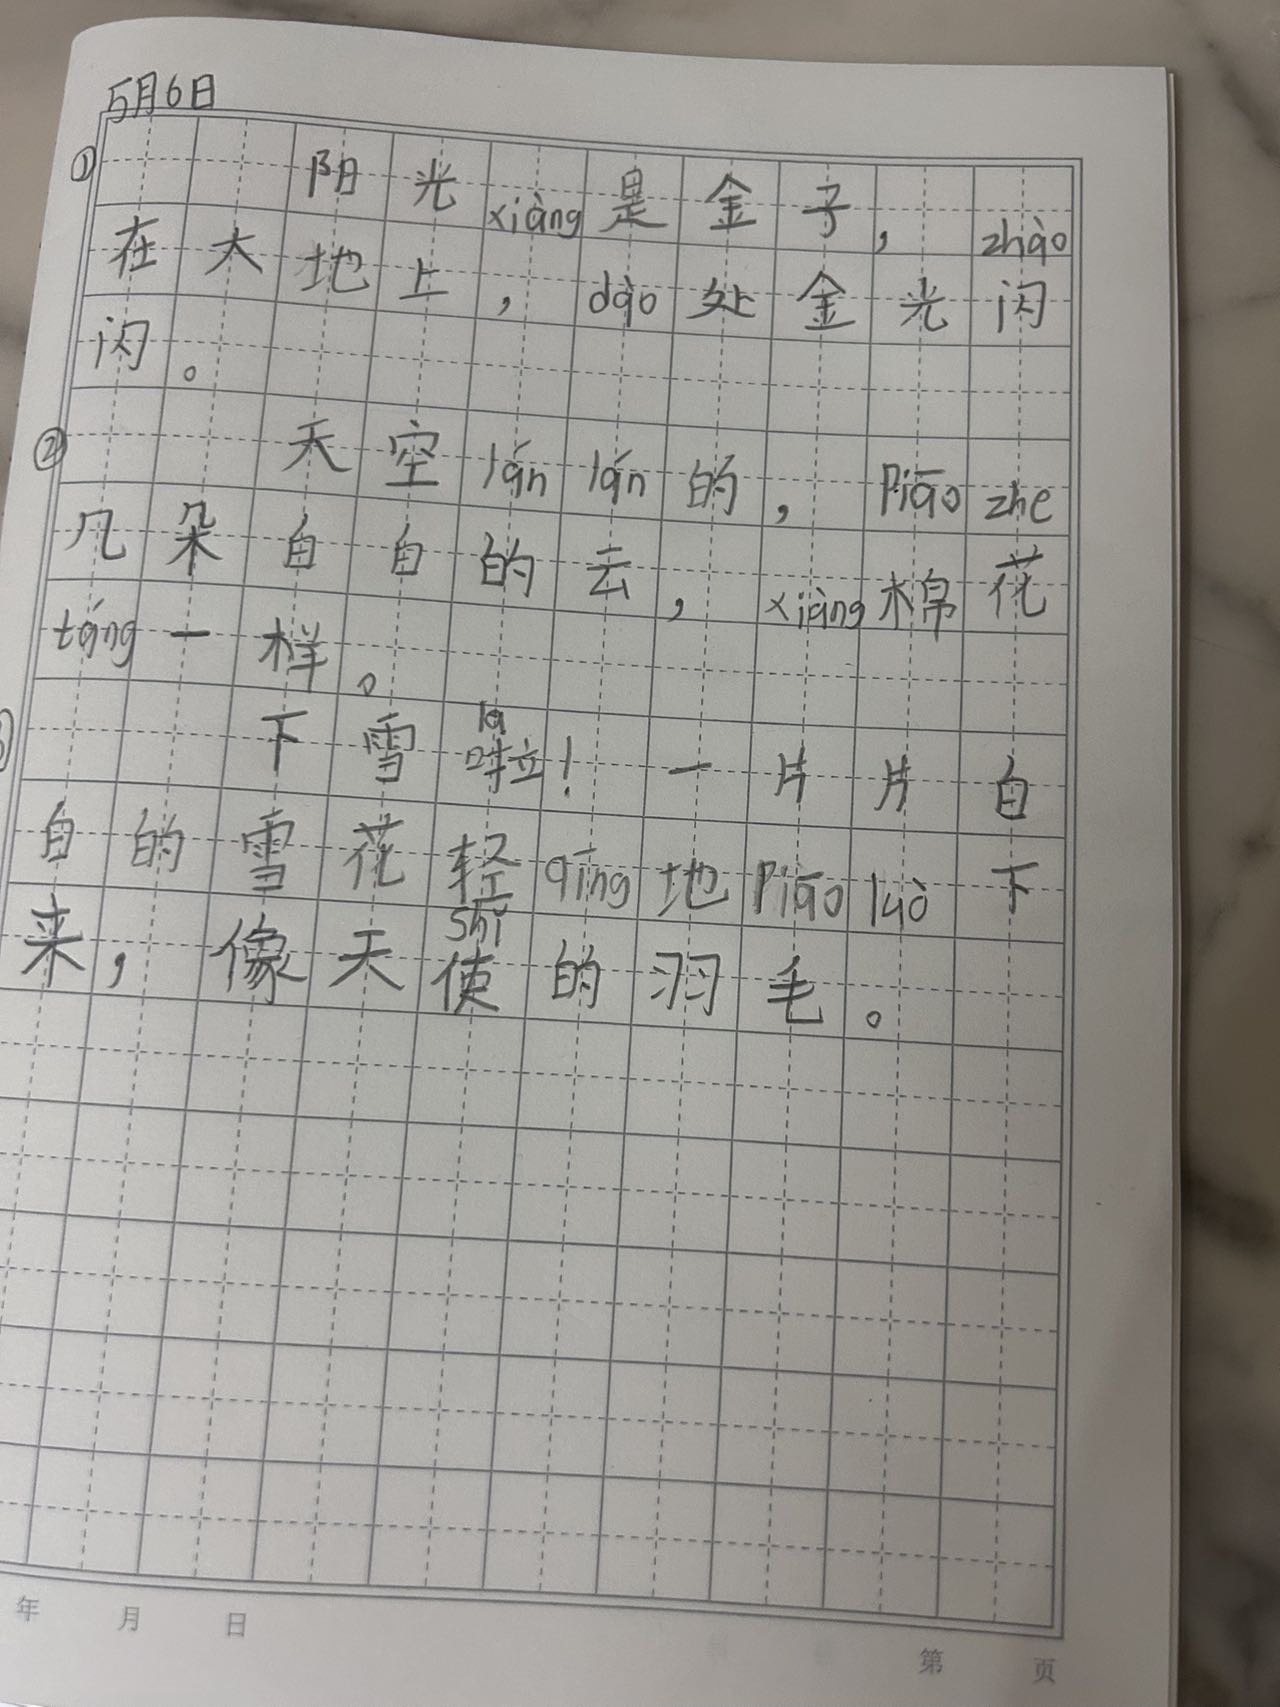 5月6日
① 阳光xiàng是金子，zhào
在大地上，dào处金光闪
闪。
② 天空lán lán的，Piāo zhe
几朵白白的云，xiàng棉花
táng一样。
③ 下雪啦la！一片片白
白的雪花轻qīng地Piāo luò下
来，像天使shǐ的羽毛。
年 月 日
第 页